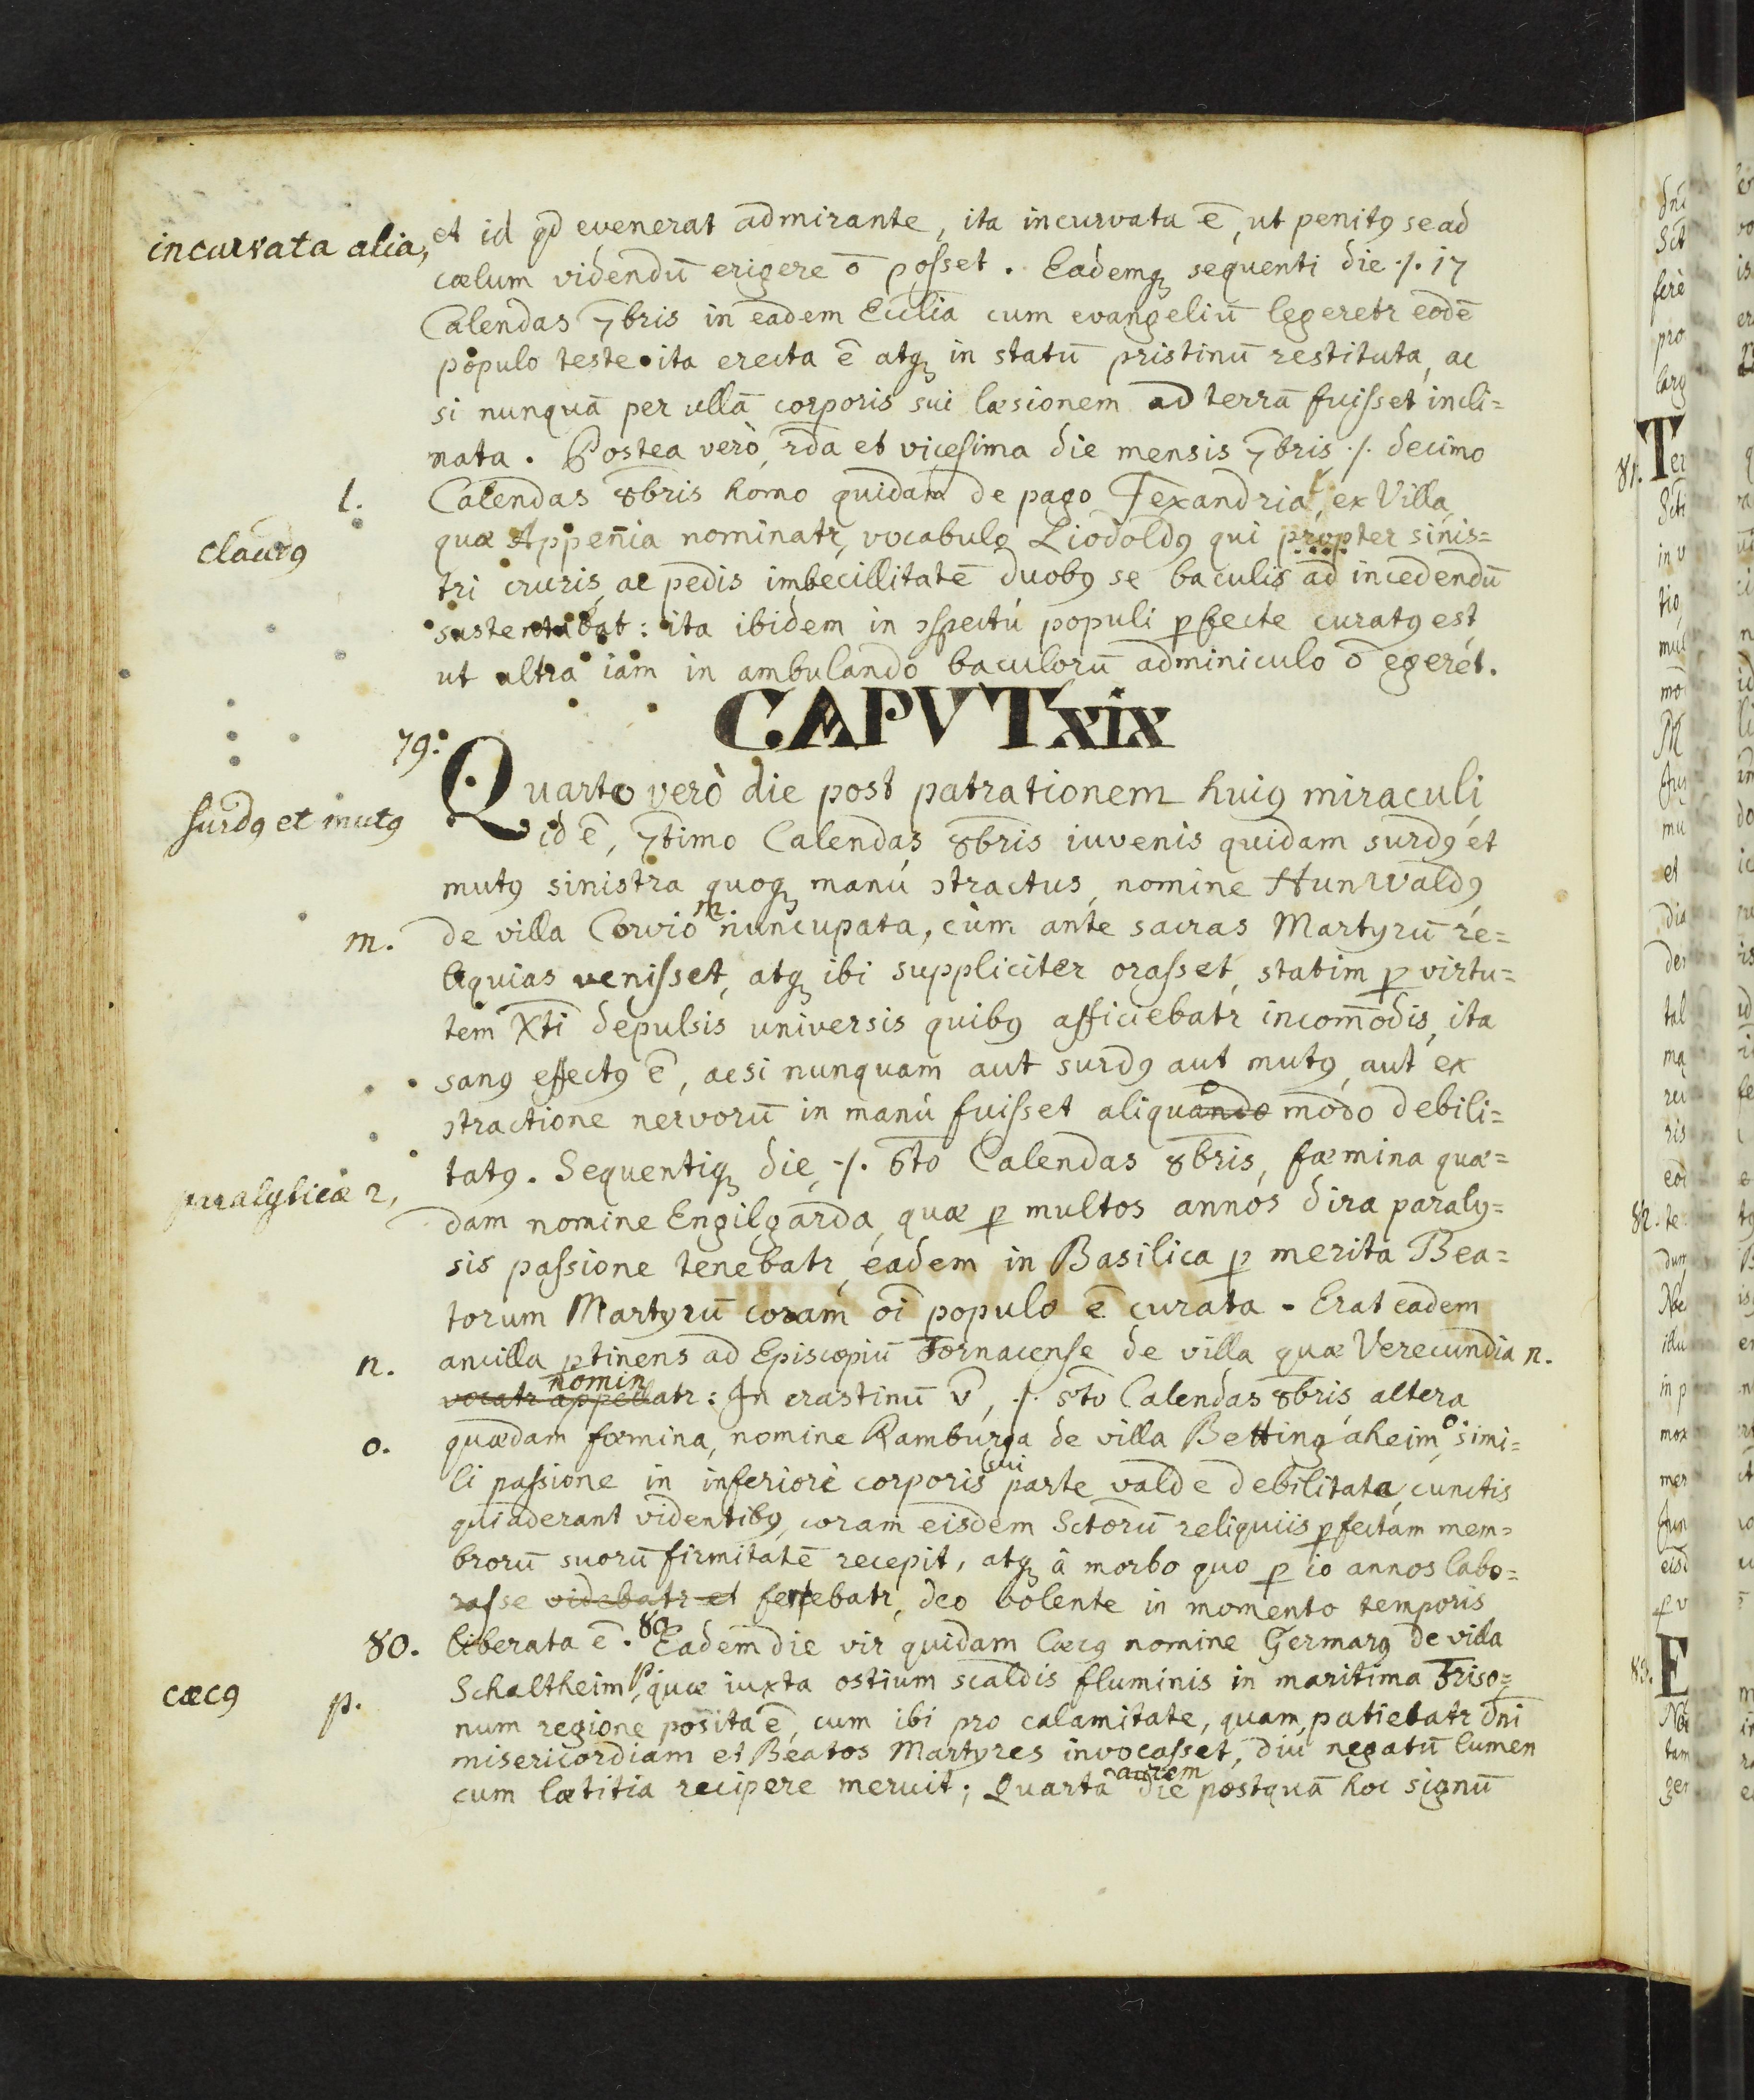 incurvata alia,
et id qd evenerat admirante, ita incurvata ē, ut penitꝯ se ad
cælum videndū erigere ō posset. Eademqꝫ sequenti die ./. 17
Calendas 7bris in eadem Ecclia cum evangeliū legeretr eodē
populo teste ita erecta ē atqꝫ in statū pristinū restituta, ac
si nunquā per ullā corporis sui læsionem ad terrā fuisset incli=
nata. Postea verò, 2da et vicesima die mensis 7bris ./. decimo
l. Calendas 8bris homo quidam de pago Texandria l, ex Villa
quæ Appenia nominatr, vocabulo Liodoldꝯ qui propter sinis=
claudꝯ
tri cruris, ac pedis imbecillitatē duobꝯ se baculis ad incedendū
sustentabat: ita ibidem in ↄspectú populi ꝑfecte curatꝯ est
ut ultra iam in ambulando baculorū adminiculo ō egerét.
CAPVT xix
79. Quarto verò die post patrationem huiꝯ miraculi,
surdꝯ et mutꝯ
id ē, 7timo Calendas 8bris iuvenis quidam surdꝯ et
mutꝯ sinistra quoqꝫ manú ↄtractus, nomine Hunwaldꝯ
m. de villa Corvio m nuncupata, cùm ante sacras Martyrū re=
liquias venisset, atqꝫ ibi suppliciter orasset, statim ꝑ virtu=
tem Xti depulsis universis quibꝯ afficiebatr incom̄odis, ita
sanꝯ effectꝯ ē, ac si nunquam aut surdꝯ aut mutꝯ, aut ex
ↄtractione nervorū in manú fuisset aliquando o modo debili=
tatꝯ. Sequentiqꝫ die, ./. 6to Calendas 8bris, fæmina quæ=
paralyticæ 2,
dam nomine Engilgarda, quæ ꝑ multos annos dira paraly=
sis passione tenebatr, eadem in Basilica ꝑ merita Bea=
torum Martyrū coram oī populo ē curata. Erat eadem
n. ancilla ꝑtinens ad Episcopiū Tornacense de villa quæ Verecundia n.
vocatr appellatr nomin: In crastinū v̄, ./. 5to Calendas 8bris altera
o. quædam fœmina, nomine Ramburga de villa Bettingaheim o simi=
li passione in inferiori corporis sui parte valde debilitata, cunctis
qui aderant videntibꝯ, coram eisdem Sctorū reliquiis ꝑfectam mem=
brorū suorū firmitatē recepit, atqꝫ â morbo quo ꝑ io annos labo=
rasse videbatr et ferebatr, deo volente in momento temporis
80. liberata ē. 80 Eadem die vir quidam Cæcꝯ nomine Germarꝯ de villa
cæcꝯ
p. Schaltheim p, quæ iuxta ostium scaldis fluminis in maritima Friso=
num regione posita ē, cum ibi pro calamitate, quam patiebatr dnī
misericordiam et Beatos Martyres invocasset, diu negatū lumen
cum lætitia recipere meruit; Quarta autem die postquā hoc signū